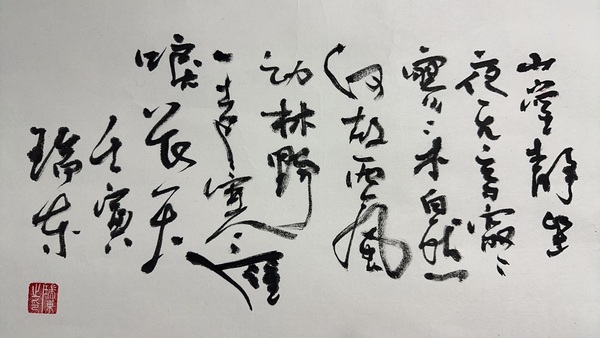 山堂静坐
夜无言寂〻
寥〻本自然
何故西風
动林野
一声寒雁
唳长天
壬寅
瑞东